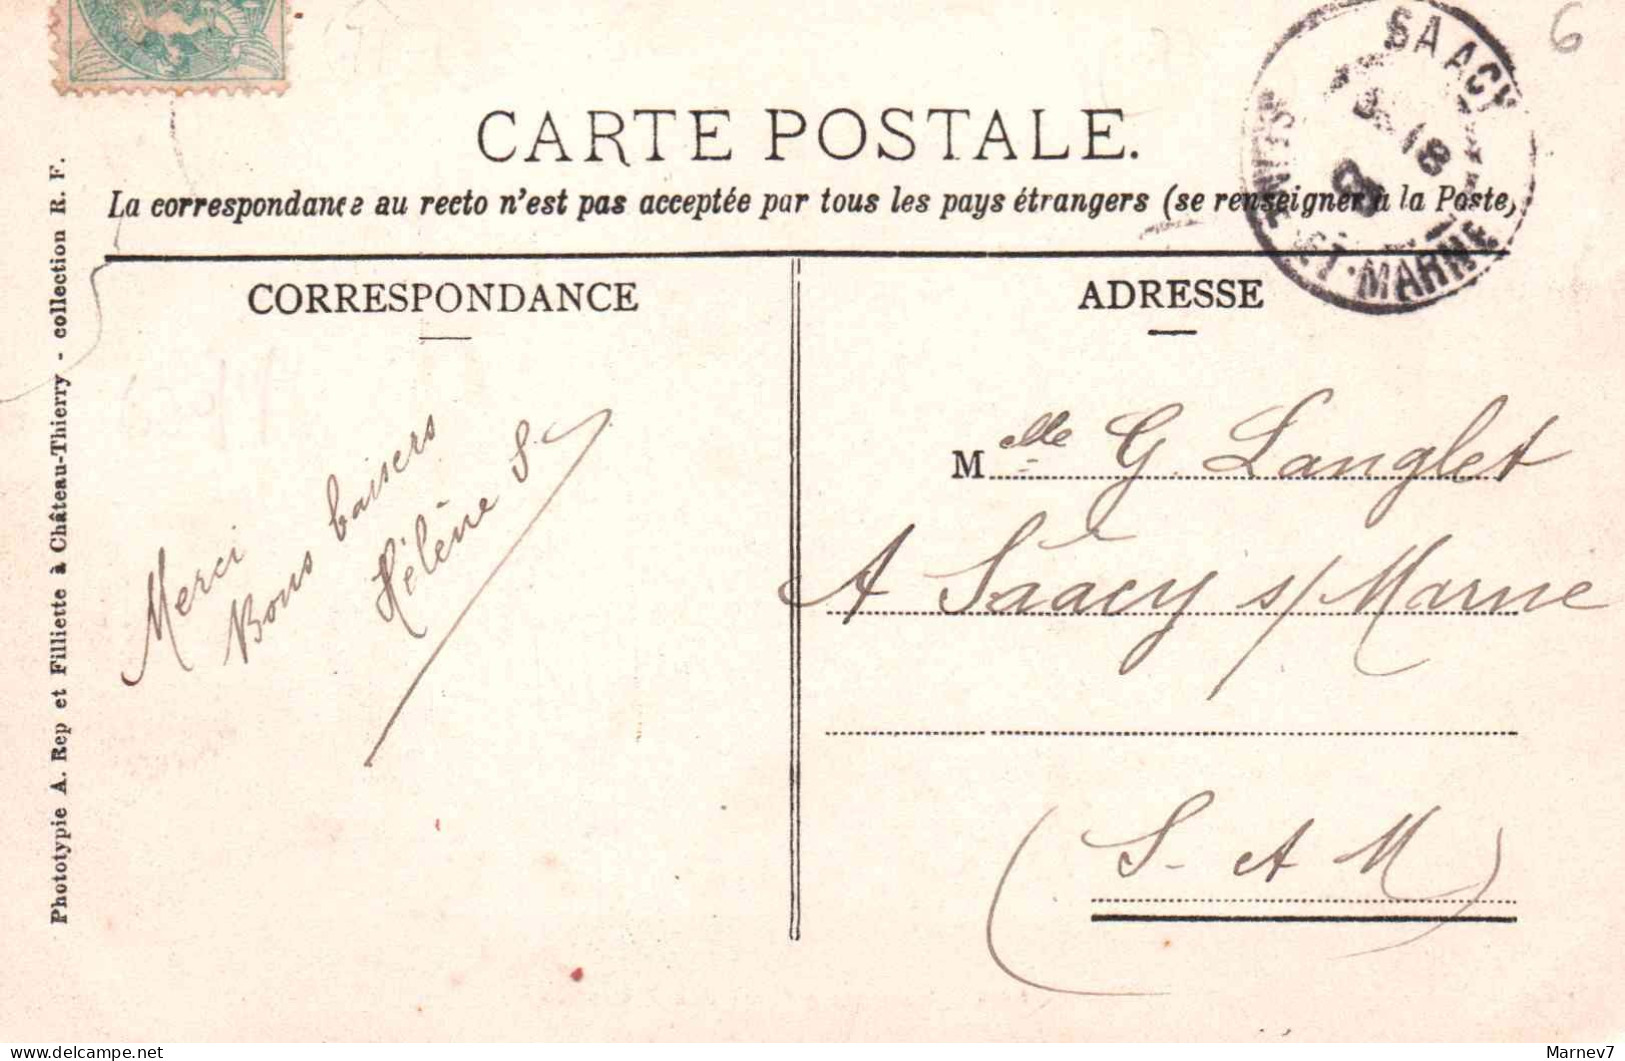 6
SAACY
18
SEINE-ET-MARNE
CARTE POSTALE.
La correspondance au recto n'est pas acceptée par tous les pays étrangers (se renseigner à la Poste)
CORRESPONDANCE
Merci
Bons baisers
Hélène S.
ADRESSE
Melle G. Langlet
A Saâcy s/ Marne
(S. et M)
Phototypie A. Rep et Filliette à Château-Thierry - collection R. F.
delcampe.net
Marnev7